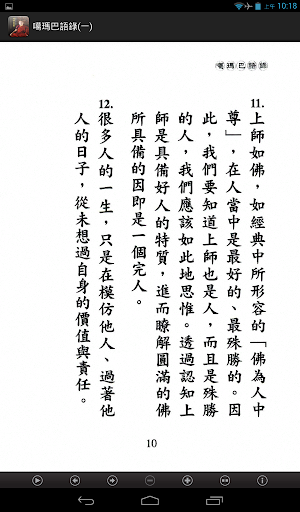 噶瑪巴語錄(一)
上午 10:18
噶瑪巴語錄
11. 上師如佛，如經典中所形容的「佛為人中
尊」，在人當中是最好的、最殊勝的。因
此，我們要知道上師也是人，而且是殊勝
的人，我們應該如此地思惟。透過認知上
師是具備好人的特質，進而瞭解圓滿的佛
所具備的因即是一個完人。
12. 很多人的一生，只是在模仿他人、過著他
人的日子，從未想過自身的價值與責任。
10